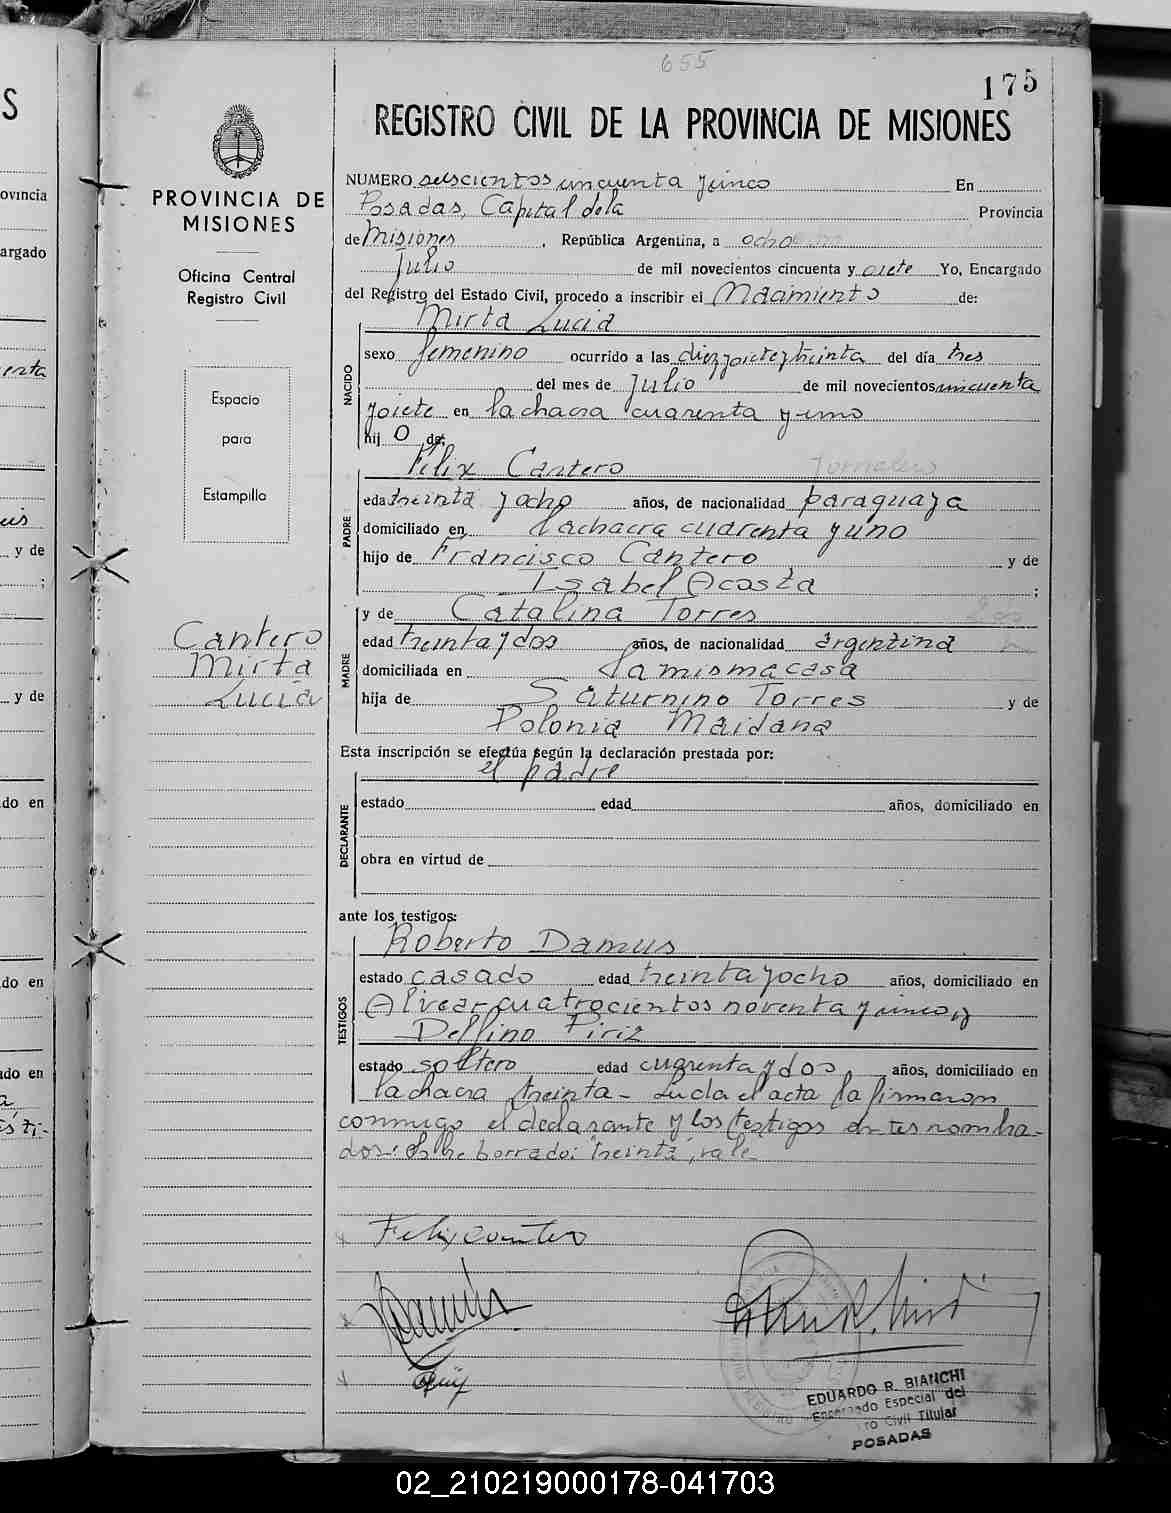 655
175
REGISTRO CIVIL DE LA PROVINCIA DE MISIONES
PROVINCIA DE
MISIONES
Oficina Central
Registro Civil
Espacio
para
Estampilla
Cantero
Mirta
Lucia
NUMERO seiscientos cincuenta y cinco En
Posadas, Capital de la Provincia
de Misiones, República Argentina, a ocho
Julio de mil novecientos cincuenta y siete Yo, Encargado
del Registro del Estado Civil, procedo a inscribir el Nacimiento de:
Mirta Lucia
NACIDO
sexo femenino ocurrido a las diez y siete y treinta del día tres
del mes de Julio de mil novecientos cincuenta
y siete en la chacra cuarenta y uno
hij o de:
Felix Cantero Jornalero
PADRE
edad treinta y ocho años, de nacionalidad paraguaya
domiciliado en la chacra cuarenta y uno
hijo de Francisco Cantero y de
Isabel Acosta ;
MADRE
y de Catalina Torres
edad treinta y dos años, de nacionalidad argentina
domiciliada en la misma casa
hija de Saturnino Torres y de
Polonia Maidana
Esta inscripción se efectúa según la declaración prestada por:
el padre
DECLARANTE
estado edad años, domiciliado en
obra en virtud de
ante los testigos:
Roberto Damus
TESTIGOS
estado casado edad treinta y ocho años, domiciliado en
Alvear cuatrocientos noventa y cinco, y
Delfino Piriz
estado soltero edad cuarenta y dos, años, domiciliado en
la chacra treinta - Leida el acta la firmaron
conmigo el declarante y los testigos antes nombra-
dos: borrado: "treinta", vale
Felix Cantero
EDUARDO R. BIANCHI
Encargado Especial del
ro Civil Titular
POSADAS
S
ovincia
argado
enta
y de
;
y de
do en
do en
do en
02_210219000178-041703